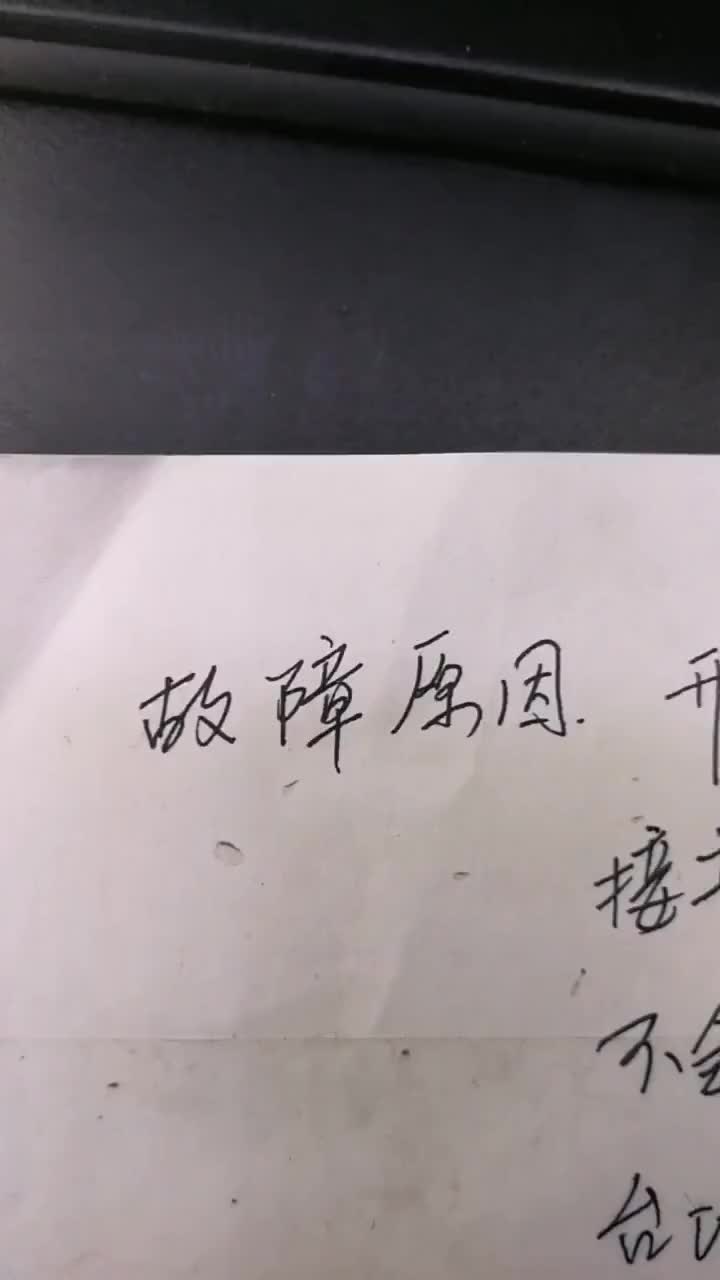 故障原因.
接
不
台